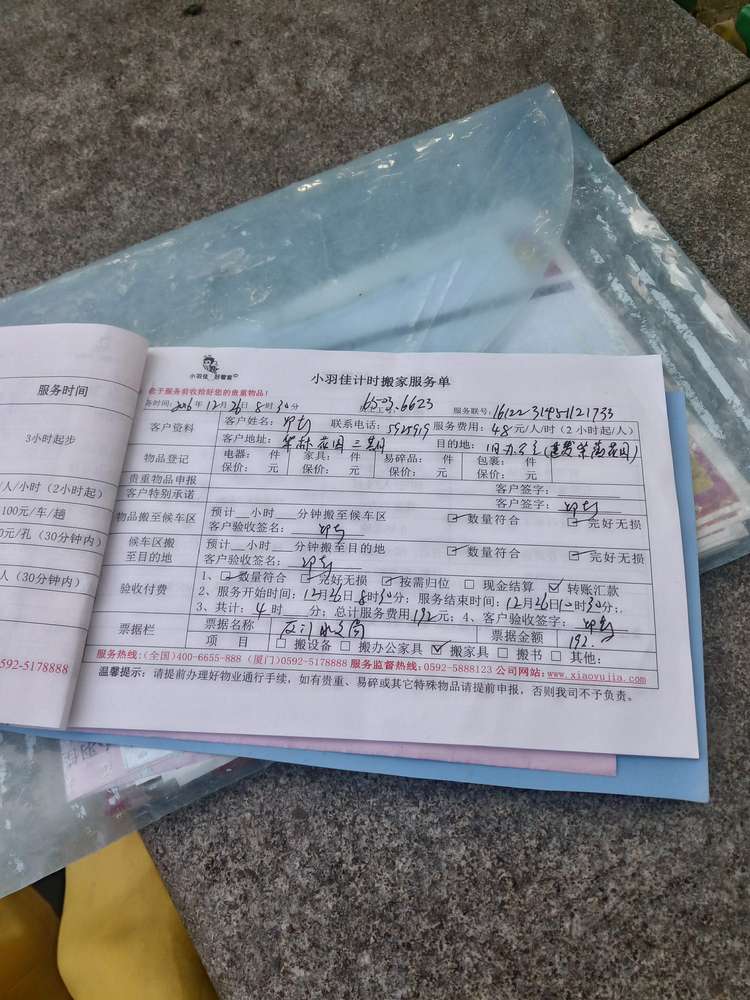 服务时间
3小时起步
/人/小时（2小时起）
100元/车/趟
0元/孔（30分钟内）
人（30分钟内）
0592-5178888
小羽佳 好管家
小羽佳计时搬家服务单
在于服务前收拾好您的贵重物品！
务时间：2016年12月26日8时30分 6523.6623 服务联号：
客户资料 客户姓名： 联系电话：5925919 服务费用：48元/人/时（2小时起/人）
客户地址： 花园三期 目的地：旧办公室
物品登记 电器： 件 家具： 件 易碎品： 件 包裹： 件
保价： 元 保价： 元 保价： 元 保价： 元
贵重物品申报 客户签字：
客户特别承诺 客户签字：
物品搬至候车区 预计__小时__分钟搬至候车区 ☑数量符合 ☑完好无损
客户验收签名：
候车区搬至目的地 预计__小时__分钟搬至目的地 ☑数量符合 ☑完好无损
客户验收签名：
验收付费 1、☑数量符合 ☑完好无损 ☑按需归位 □现金结算 ☑转账汇款
2、服务开始时间：12月26日8时30分；服务结束时间：12月26日10时30分；
3、共计：4时 分；总计服务费用192元；4、客户验收签字：
票据栏 票据名称 票据金额 192.
项 目 □搬设备 □搬办公家具 ☑搬家具 □搬书 □其他：
服务热线：(全国)400-6655-888 (厦门)0592-5178888 服务监督热线:0592-5888123 公司网站:www.xiaoyujia.com
温馨提示：请提前办理好物业通行手续，如有贵重、易碎或其它特殊物品请提前申报，否则我司不予负责。